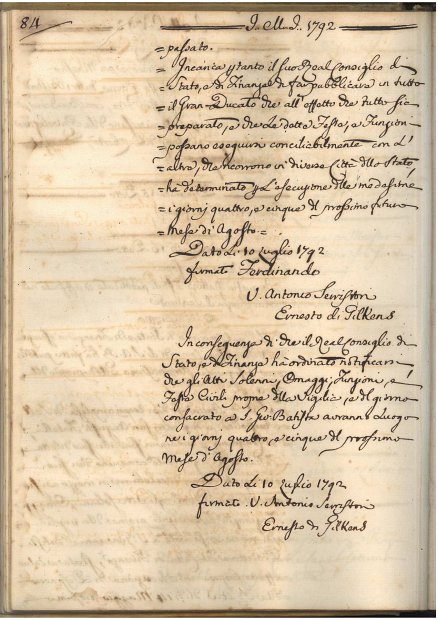 84
J. M. J. 1792
= passato.
= Incarica p tanto il suo Real Consiglio di
= Stato, e di Finanze di far pubblicare in tutto
= il Gran-Ducato che all'effetto che tutto sia
= preparato, e che le dette Feste, e Funzion
= possano eseguirsi conciliabilmente con l'
= altre, che ricorrono in diverse Città dello Stato
= ha determinato p l'esecuzione delle medesime
= i giorni quattro, e cinque del prossimo futuro
= Mese di Agosto =
Dato li 10 Luglio 1792
firmato Ferdinando
V. Antonio Serristori
Ernesto di Gilkens
In consequenza di che il Real Consiglio di
Stato, e di Finanze ha ordinato notificarsi
che gli Atti Solenni, Omaggi, Funzioni, e
Feste Civili proprie della Vigilia, e del giorno
consacrato a S. Gio. Batista avranno Luogo
nei giorni quattro, e cinque del prossimo
Mese d'Agosto.
Dato li 10 Luglio 1792
firmati V. Antonio Serristori
Ernesto di Gilkens